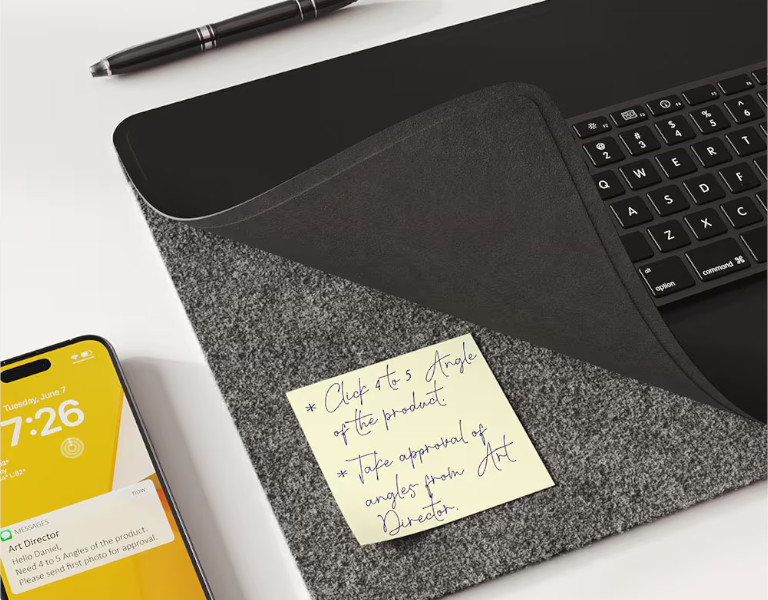 * Click 4 to 5 Angle
of the product.
* Take approval of
angles from Art
Director.
Tuesday, June 7
7:26
MESSAGES
now
Art Director
Hello Daniel,
Need 4 to 5 Angles of the product.
Please send first photo for approval.
F2 F3
@ 2 # 3 $ 4 % 5 ^ 6
Q W E R T
A S D F
Z X C
alt option command ⌘